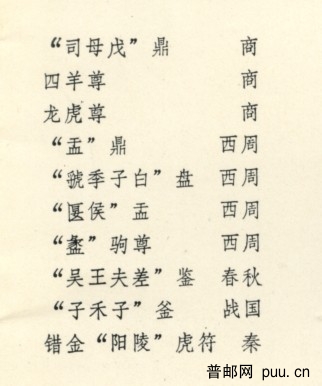 “司母戊”鼎 商
四羊尊 商
龙虎尊 商
“盂”鼎 西周
“虢季子白”盘 西周
“匽侯”盂 西周
“盠”驹尊 西周
“吴王夫差”鉴 春秋
“子禾子”釜 战国
错金“阳陵”虎符 秦
普邮网 puu.cn